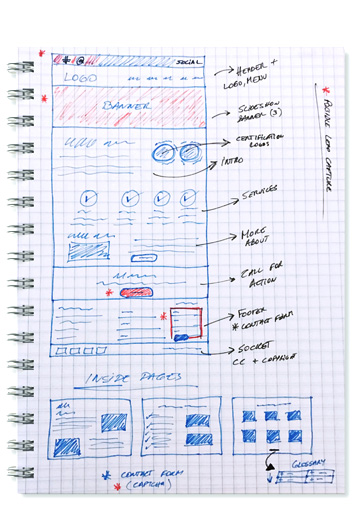 # @ SOCIAL
LOGO
HEADER +
LOGO, MENU
BANNER
SLIDESHOW
BANNER (3)
CERTIFICATION
LOGOS
INTRO
SERVICES
MORE
ABOUT
CALL FOR
ACTION
FOOTER
* CONTACT FORM
SOCKET
CC + COPYRIGHT
* POSSIBLE LEAD CAPTURE
INSIDE PAGES
GLOSSARY
* CONTACT FORM
* (CAPTCHA)